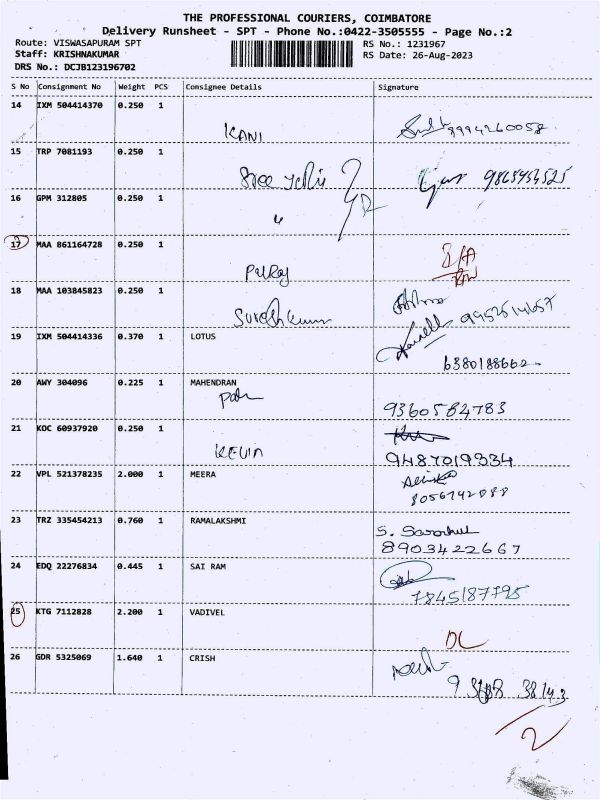 THE PROFESSIONAL COURIERS, COIMBATORE
Delivery Runsheet - SPT - Phone No.:0422-3505555 - Page No.:2
Route: VISWASAPURAM SPT RS No.: 1231967
Staff: KRISHNAKUMAR RS Date: 26-Aug-2023
DRS No.: DCJB123196702
S No Consignment No Weight PCS Consignee Details Signature
14 IXM 504414370 0.250 1
KANI 9994260058
15 TRP 7081193 0.250 1
Sree 9865454525
16 GPM 312805 0.250 1
"
17 MAA 861164728 0.250 1
Palraj
18 MAA 103845823 0.250 1
Suresh kumar
19 IXM 504414336 0.370 1 LOTUS
6380188662
20 AWY 304096 0.225 1 MAHENDRAN
9360584783
21 KOC 60937920 0.250 1
KEVIN 9487019334
22 VPL 521378235 2.000 1 MEERA
8056742088
23 TRZ 335454213 0.760 1 RAMALAKSHMI
S.
8903422667
24 EDQ 22276834 0.445 1 SAI RAM
7845187795
25 KTG 7112828 2.200 1 VADIVEL
DL
26 GDR 5325069 1.640 1 CRISH
2